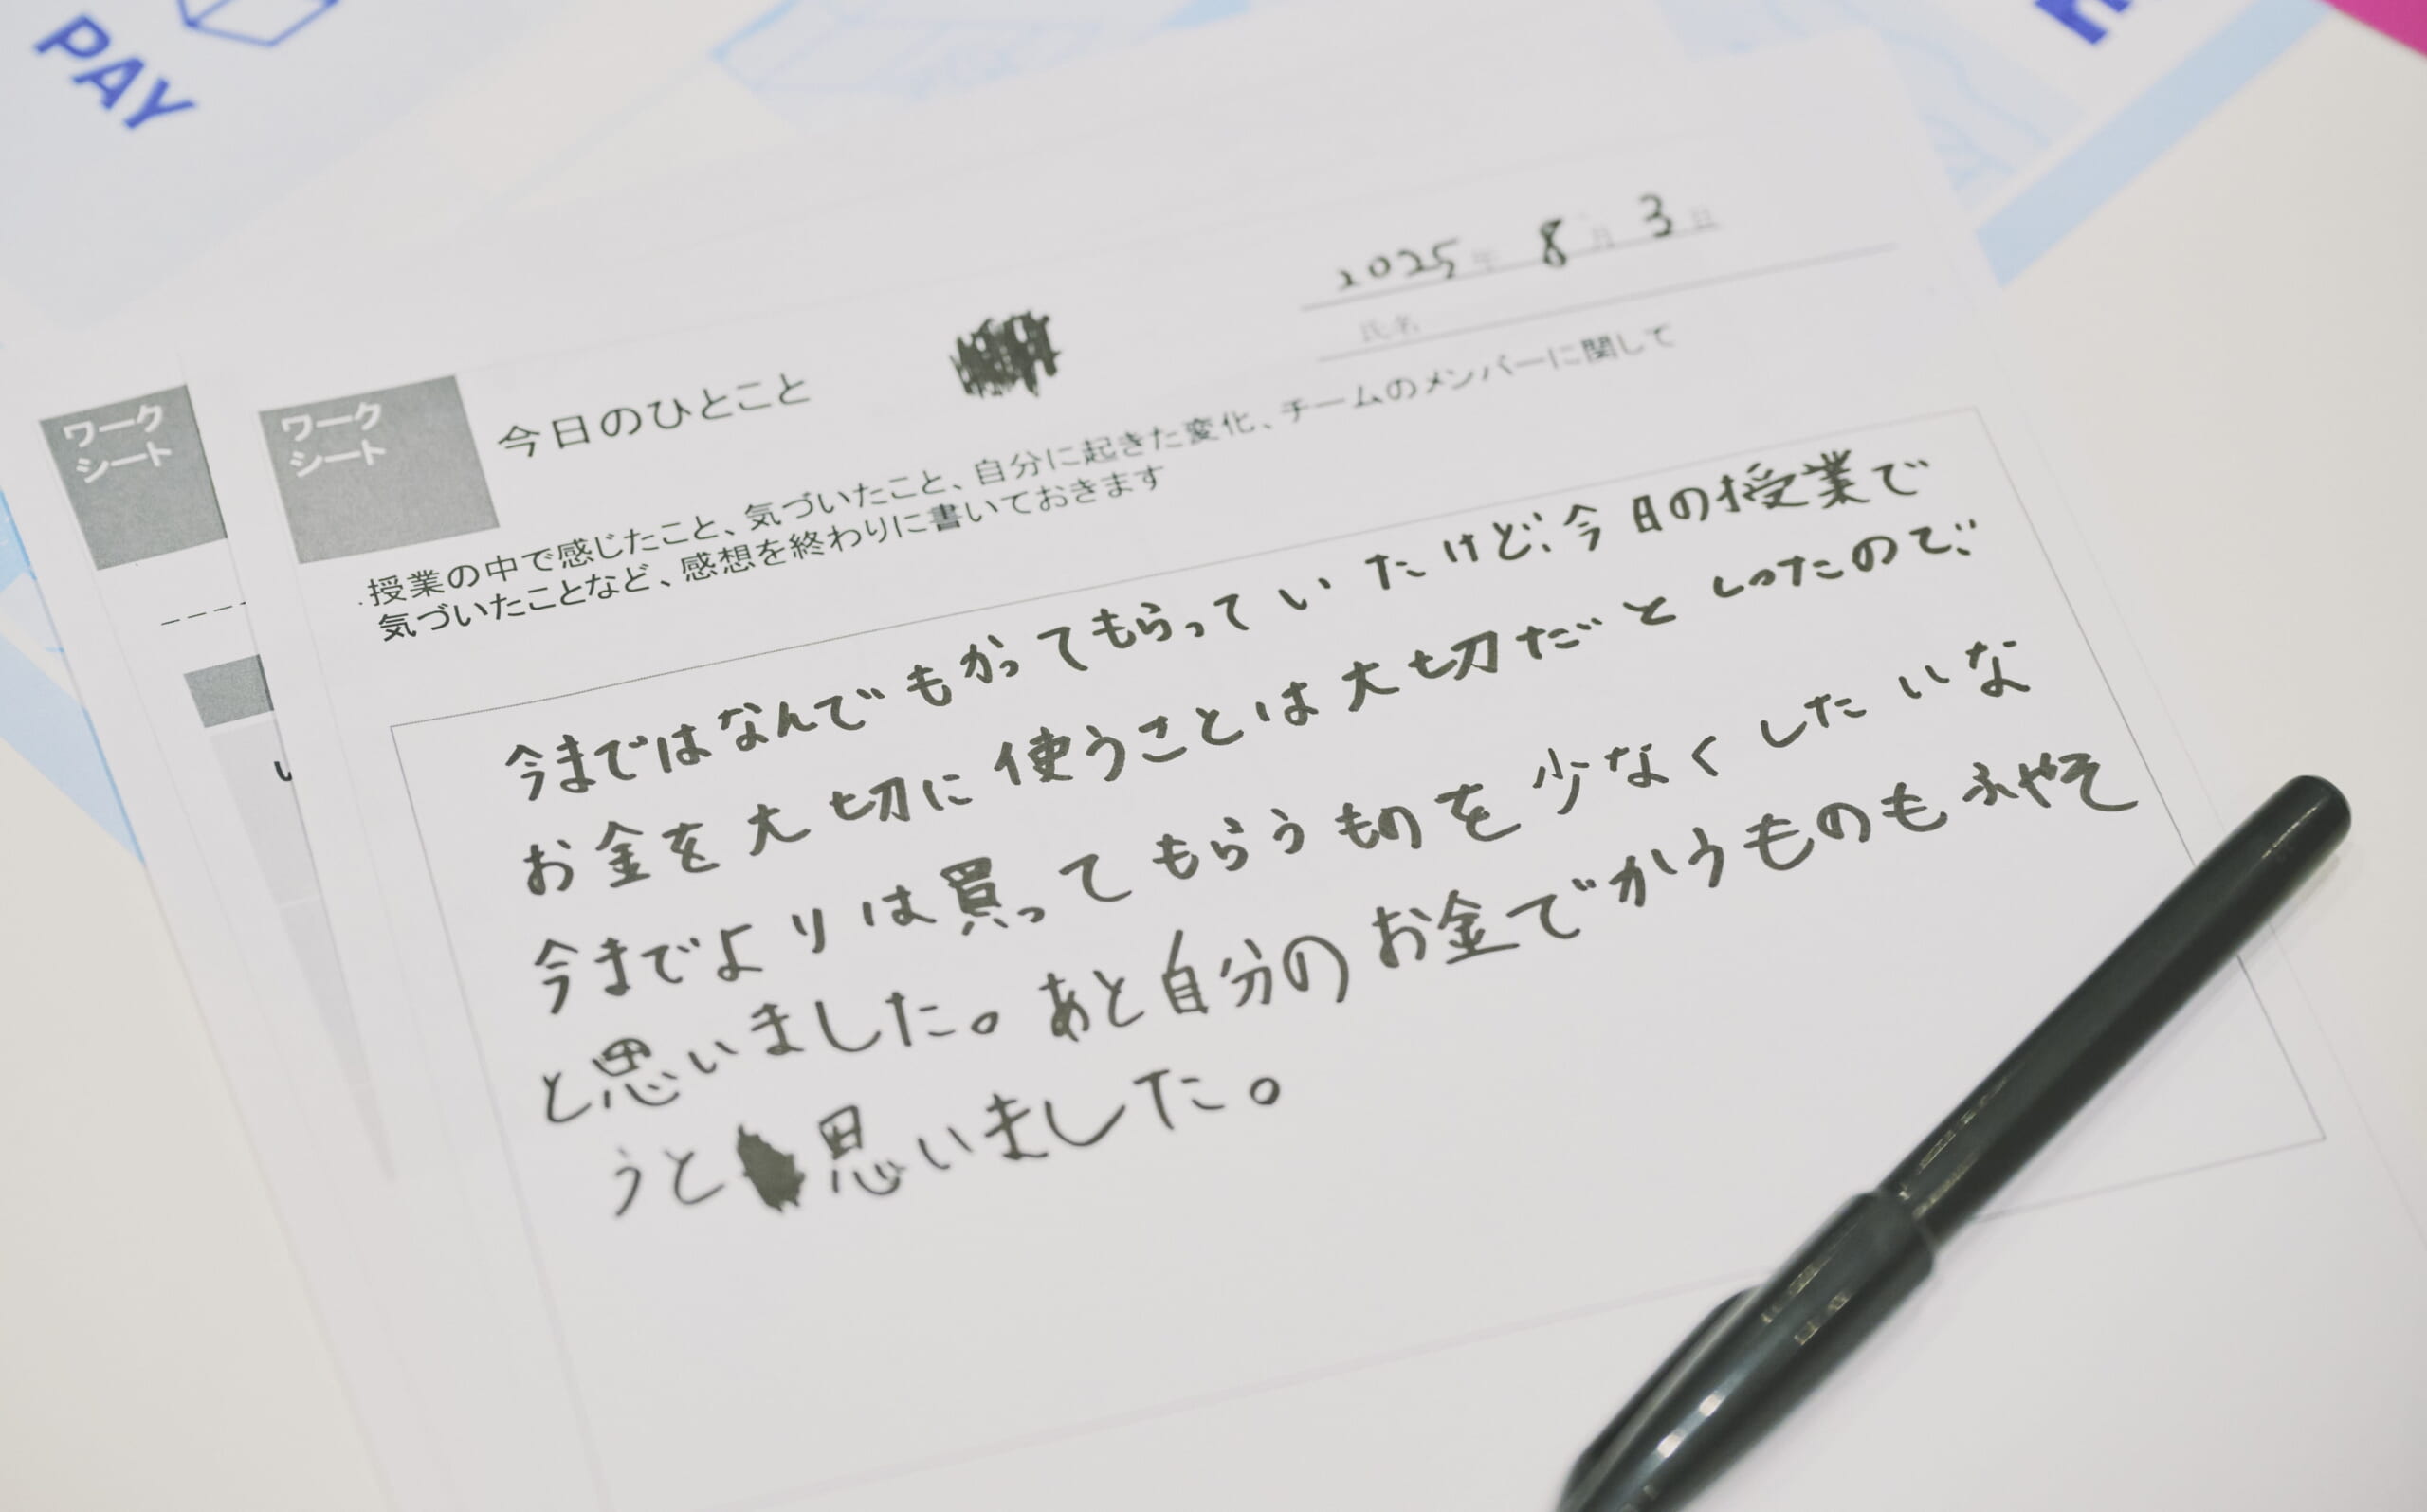 PAY
2025年 8月 3日
氏名
ワーク
シート
ワーク
シート
今日のひとこと
授業の中で感じたこと、気づいたこと、自分に起きた変化、チームのメンバーに関して
気づいたことなど、感想を終わりに書いておきます
今まではなんでもかってもらっていたけど、今日の授業で
お金を大切に使うことは大切だとしったので、
今までよりは買ってもらうものを少なくしたいな
と思いました。あと自分のお金でかうものもふやそ
うと思いました。